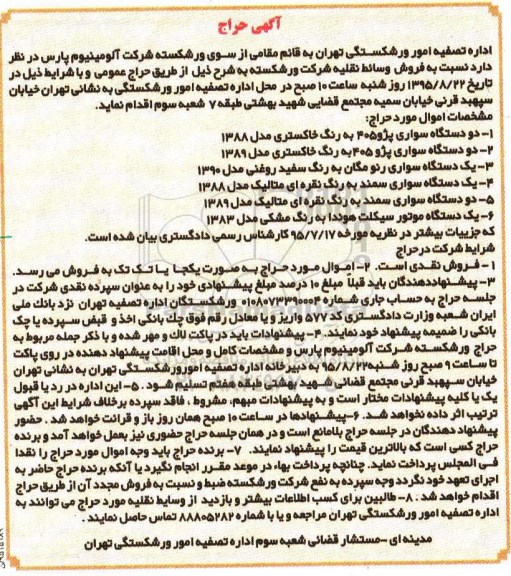 آگهی حراج
اداره تصفیه امور ورشکستگی تهران به قائم مقامی از سوی ورشکسته شرکت آلومینیوم پارس در نظر
دارد نسبت به فروش وسائط نقلیه شرکت ورشکسته به شرح ذیل از طریق حراج عمومی و با شرایط ذیل در
تاریخ ۱۳۹۵/۸/۲۲ روز شنبه ساعت ۱۰ صبح در محل اداره تصفیه امور ورشکستگی به نشانی تهران خیابان
سپهبد قرنی خیابان سمیه مجتمع قضایی شهید بهشتی طبقه ۷ شعبه سوم اقدام نماید.
مشخصات اموال مورد حراج:
۱- دو دستگاه سواری پژو۴۰۵ به رنگ خاکستری مدل ۱۳۸۸
۲- دو دستگاه سواری پژو ۴۰۵ به رنگ خاکستری مدل ۱۳۸۹
۳- یک دستگاه سواری رنو مگان به رنگ سفید روغنی مدل ۱۳۹۰
۴- یک دستگاه سواری سمند به رنگ نقره ای متالیک مدل ۱۳۸۸
۵- دو دستگاه سواری سمند به رنگ نقره ای متالیک مدل ۱۳۸۹
۶- یک دستگاه موتور سیکلت هوندا به رنگ مشکی مدل ۱۳۸۳
که جزییات بیشتر در نظریه مورخه ۹۵/۷/۱۷ کارشناس رسمی دادگستری بیان شده است.
شرایط شرکت در حراج
۱- فروش نقدی است. ۲- اموال مورد حراج به صورت یکجا یا تک تک به فروش می رسد.
۳- پیشنهاددهندگان باید قبلا مبلغ ۱۰ درصد مبلغ پیشنهادی خود را به عنوان سپرده نقدی شرکت در
جلسه حراج به حساب جاری شماره ۰۱۰۸۰۷۳۳۹۰۰۰۴ ورشکستگان اداره تصفیه تهران نزد بانک ملی
ایران شعبه وزارت دادگستری کد ۵۷۷ واریز و یا معادل رقم فوق چک بانکی اخذ و قبض سپرده یا چک
بانکی را ضمیمه پیشنهاد خود نمایند. ۴- پیشنهادات باید در پاکت لاک و مهر شده و با ذکر جمله مربوط به
حراج ورشکسته شرکت آلومینیوم پارس و مشخصات کامل و محل اقامت پیشنهاد دهنده در روی پاکت
تا ساعت ۹ صبح روز شنبه۹۵/۸/۲۲ به دبیرخانه اداره تصفیه امورورشکستگی تهران به نشانی تهران
خیابان سپهبد قرنی مجتمع قضائی شهید بهشتی طبقه هفتم تسلیم شود. ۵- این اداره در رد یا قبول
یک یا کلیه پیشنهادات مختار است و به پیشنهادات مبهم، مشروط ، فاقد سپرده برخلاف شرایط این آگهی
ترتیب اثر داده نخواهد شد. ۶- پیشنهادها در ساعت ۱۰ صبح همان روز باز و قرائت خواهد شد . حضور
پیشنهاد دهندگان در جلسه حراج بلامانع است و در همان جلسه حراج حضوری نیز بعمل خواهد آمد و برنده
حراج کسی است که بالاترین قیمت را پیشنهاد نمایند. ۷- برنده حراج باید وجه اموال مورد حراج را نقدا
فی المجلس پرداخت نماید. چنانچه پرداخت بهاء در موعد مقرر انجام نگیرد یا آنکه برنده حراج حاضر به
اجرای تعهد خود نگردد وجه سپرده به نفع شرکت ورشکسته ضبط و نسبت به فروش مجدد آن از طریق حراج
اقدام خواهد شد . ۸- طالبین برای کسب اطلاعات بیشتر و بازدید از وسایط نقلیه مورد حراج می توانند به
اداره تصفیه امور ورشکستگی تهران مراجعه و یا با شماره ۸۸۸۰۵۲۸۲ تماس حاصل نمایند .
مدینه ای -مستشار قضائی شعبه سوم اداره تصفیه امور ورشکستگی تهران